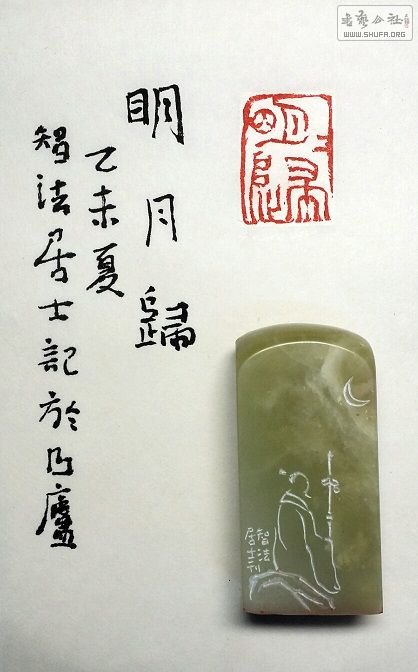 书艺公社
WWW.SHUFA.ORG
明月歸
明月歸
乙未夏
智法居士記於乃廬
智法
居士刊